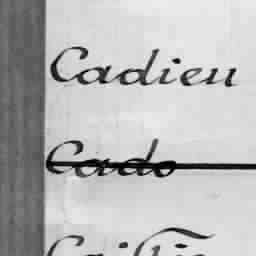 Cadieu
Cado